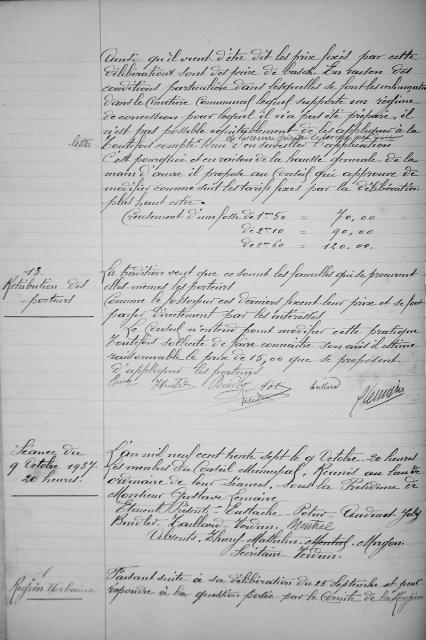 Ainsi qu'il vient d'être dit les prix fixés par cette
délibération sont des prix de base. En raison des
conditions particulières dans lesquelles se font les inhumations
dans le Cimetière Communal lequel supporte un régime
de concession pour lequel il n'a pas été préparé, il
n'est pas possible équitablement de les appliquer à la
lettre
toutefois compte tenu d'en surveiller l'application
C'est pourquoi et en raison de la hausse générale de la
main d'œuvre il propose au Conseil qui approuve de
modifier comme suit les tarifs fixés par la délibération
plus haut citée.
Creusement d'une fosse de 1m50 = 70,00
de 2m10 = 90,00
de 2m60 = 120.00.
13
Rétribution des
porteurs
La tradition veut que ce sont les familles qui se procurent
elles mêmes les porteurs
Comme le fossoyeur ces derniers fixent leur prix et se font
payer directement par les intéressés
Le Conseil n'entend point modifier cette pratique
Toutefois sollicité de faire connaître son avis il estime
raisonnable le prix de 15,00 que se proposent
d'appliquer les porteurs
GLemaire
Séance du
9 Octobre 1937
20 heures.
L'an mil neuf cent trente sept le 9 Octobre - 20 heures
les membres du Conseil Municipal, Réunis au lieu
ordinaire de leur séances, sous la Présidence de
Monsieur Gustave Lemaire
Etaient Présents - Eustache - Petier - Audinet
Bindler, Taillard, Verdun,
Absents.
Secrétaire Verdun.
1
Région Urbaine
Faisant suite à sa délibération du 25 Septembre et pour
répondre à la question posée par le Comité de la Région